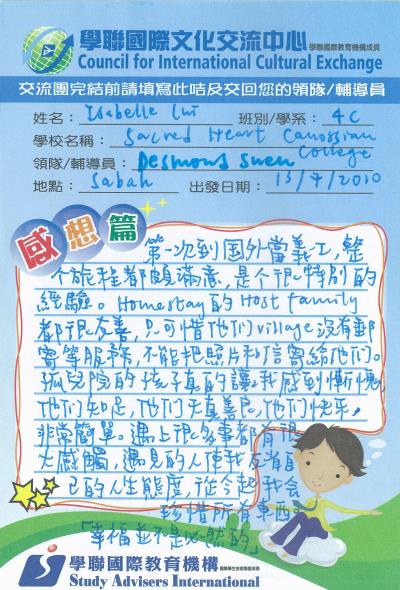 學聯國際文化交流中心 學聯國際教育機構成員
Council for International Cultural Exchange
交流團完結前請填寫此咭及交回您的領隊/輔導員
姓名：Isabelle Lui 班別/學系：4C
學校名稱：Sacred Heart Canossian College
領隊/輔導員：Desmond Suen
地點：Sabah 出發日期：13/7/2010
感想篇
第一次到国外當義工，整
个旅程都頗滿意，是个很特別的
經驗。Homestay的Host family
都很友善，只可惜他们village沒有郵
寄等服務，不能把照片和信寄給他们。
孤兒院的孩子真的讓我感到慚愧，
他们知足，他们天真善良，他们快樂，
非常簡單。遇上很多事都有很
大感觸，遇見的人使我反省自
己的人生態度，從今起我会
珍惜所有東西。
「幸福並不是必然的」
學聯國際教育機構
Study Advisers International